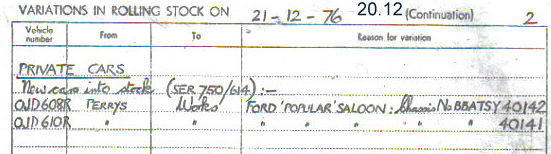 VARIATIONS IN ROLLING STOCK ON 21-12-76 20.12 (Continuation) 2
Vehicle number From To Reason for variation
PRIVATE CARS
New cars into stock (SER 750/614) :-
OJD 608R PERRYS Works FORD 'POPULAR' SALOON: Chassis No BBATSY 40142
OJD 610R " " " " " " " 40141